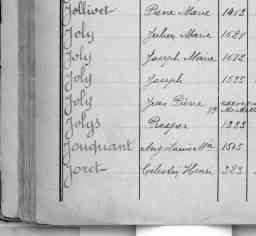 Jollivet Pierre Marie 1412
Joly Julien Marie 1621
Joly Joseph Marie 1672
Joly Joseph
Joly Jean Pierre
Jolys Prosper 1333
Jouquant Aug Louis Mie 1575
Joret Célestin Henri 323